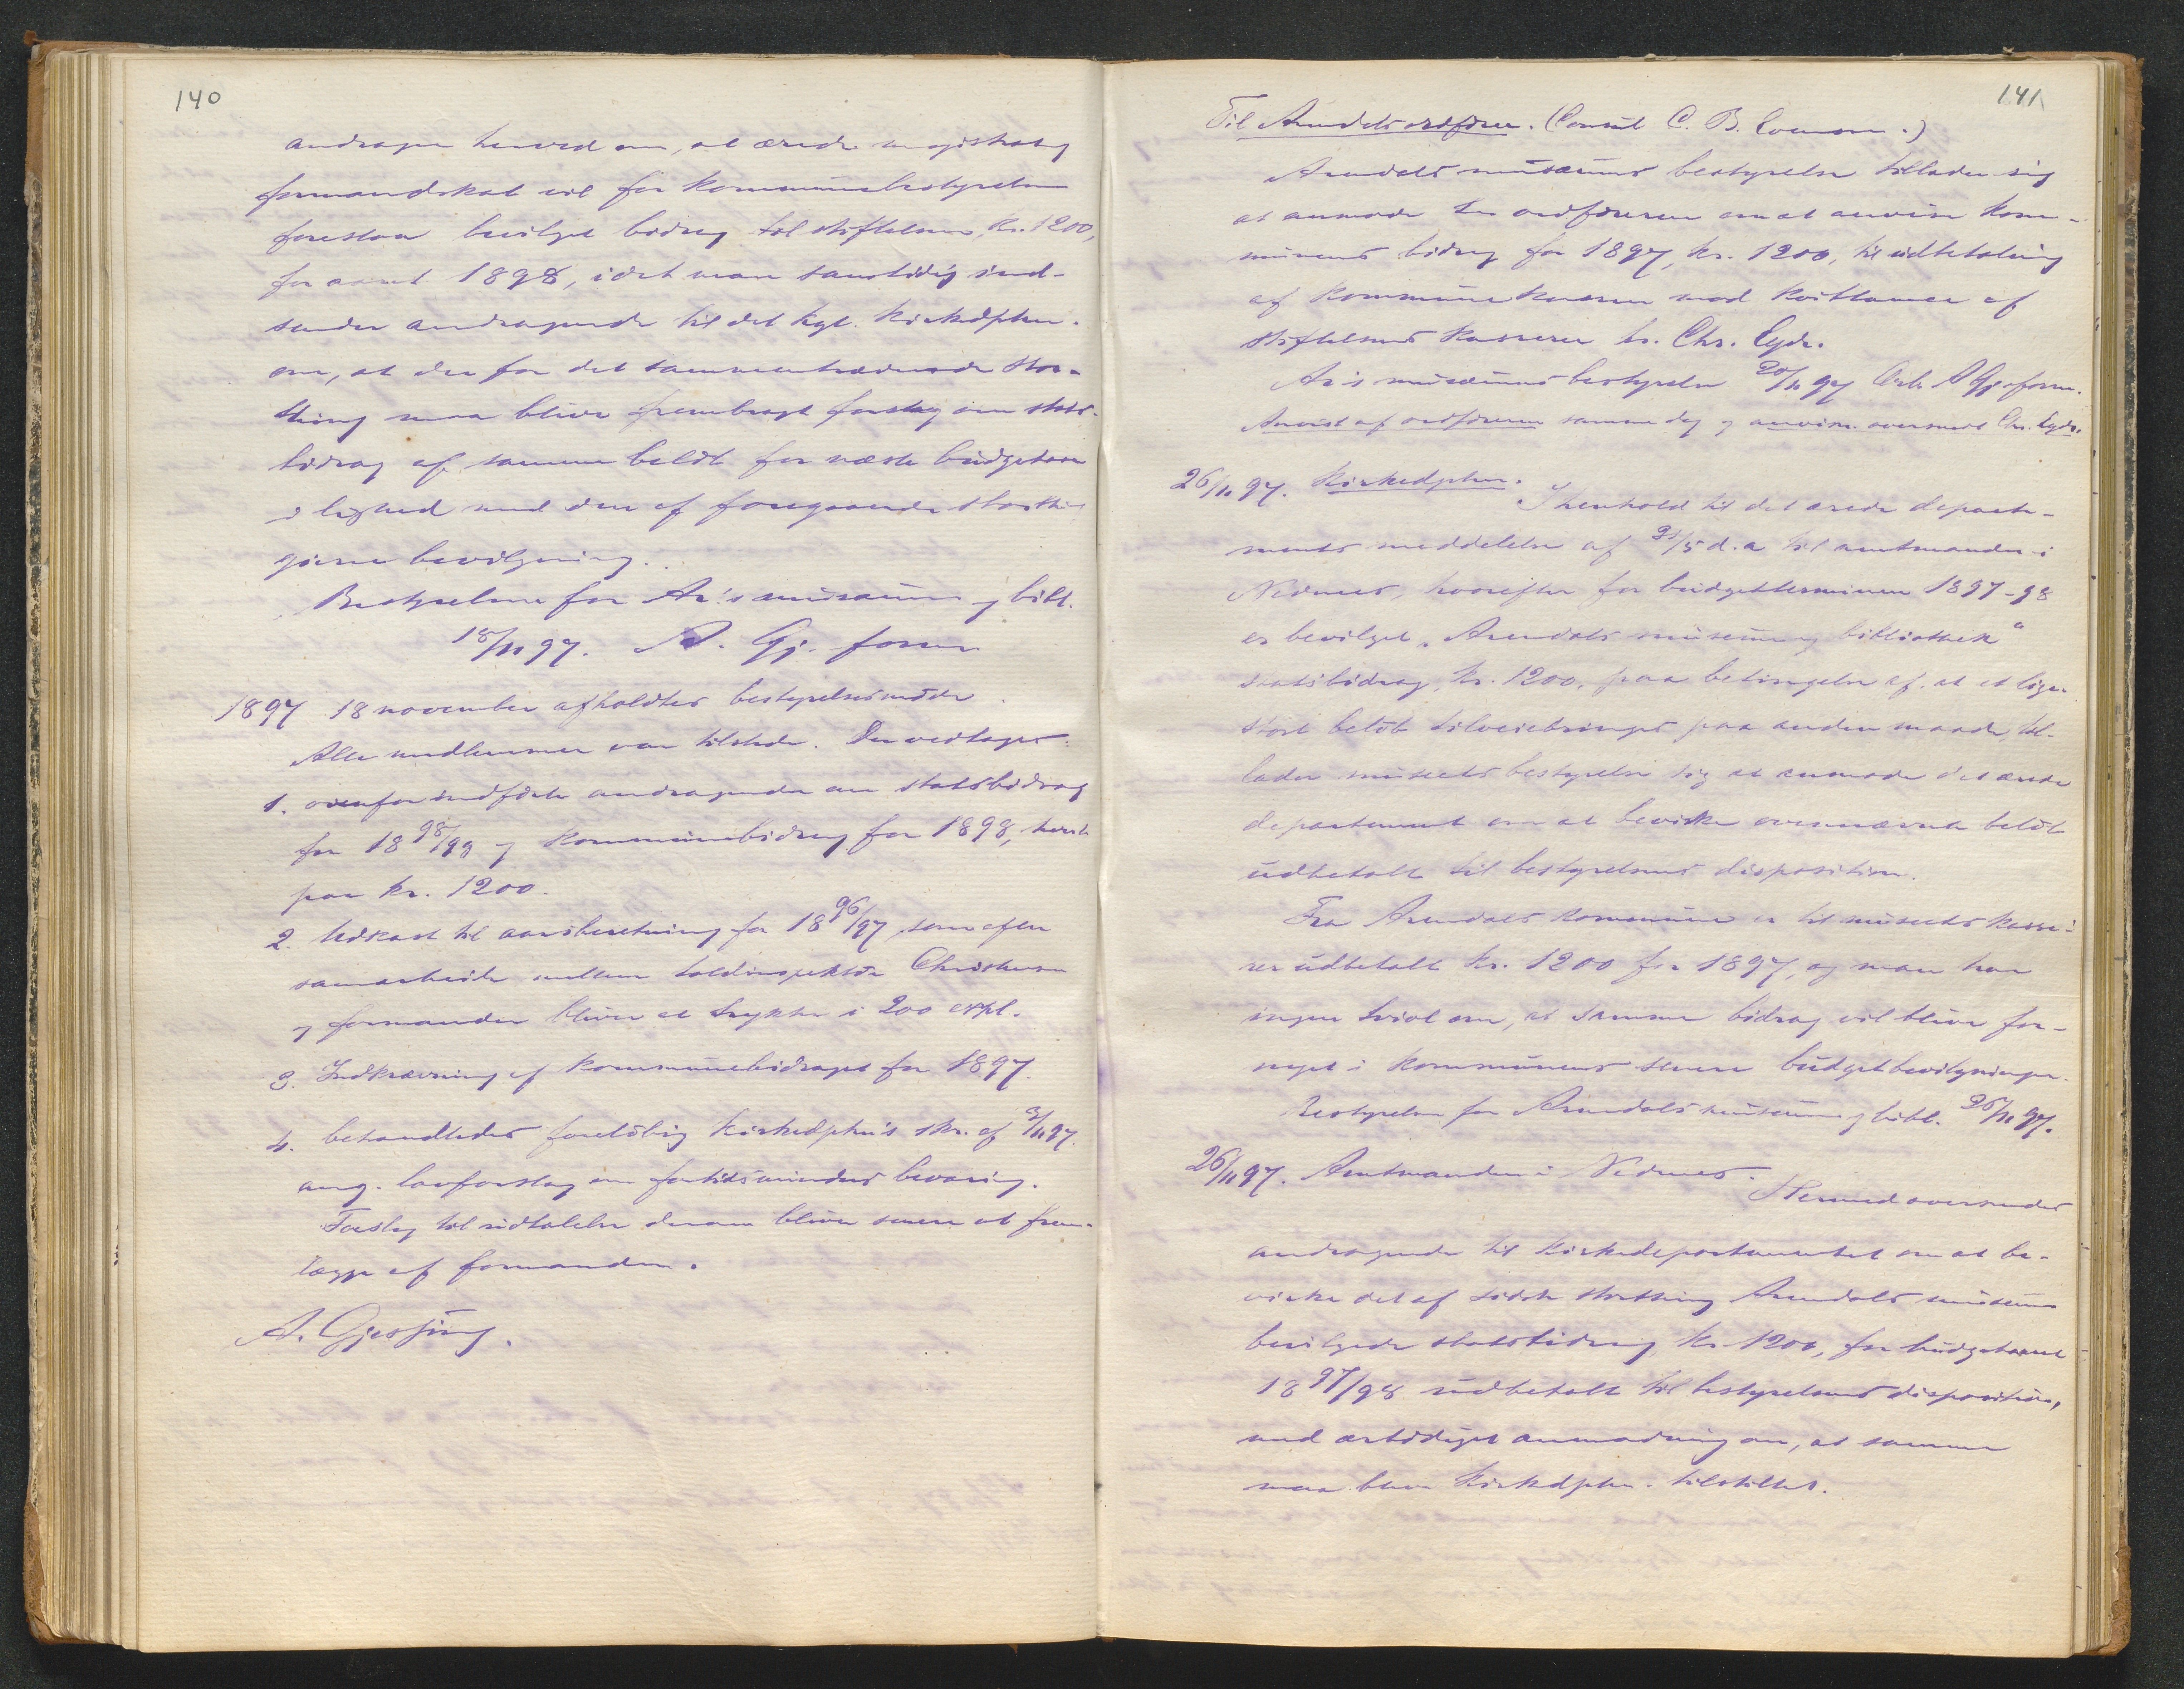 140
andrager herved om, at ærede magistrat og
formandskab vil for kommunebestyrelsen
foreslaa bevilget bidrag til stiftelsen, kr. 1200,
for aaret 1898, idet man samtidig ind-
sender andragende til det kgl. kirkedpten.
om, at der for det sammentrædende stor-
thing maa blive frembragt forslag om stats-
bidrag af samme beløb for næste budgetaar
i lighed med den af foregaaende storthing
givne bevilgning.
Bestyrelsen for Ar.'s musæum og bibl.
18/11 97. A. Gj. form
1897 18 november afholdtes bestyrelsesmøde.
Alle medlemmer var tilstede. Der vedtoges:
1. ovenfor indførte andragender om statsbidrag
for 18 98/99 og kommunebidrag for 1898, hvert
paa kr. 1200.
2. Udkast til aarsberetning for 18 96/97, som efter
samarbeide mellem toldinspektør Christensen
og formanden bliver at trykke i 200 expl.
3. Indkrævning af kommunebidraget for 1897.
4. behandledes foreløbig kirkedptns skr. af 3/11 97.
ang. lovforslag om fortidsminders bevaring.
Forslag til udtalelse derom bliver senere at frem-
lægge af formanden.
A. Gjessing.
141
Til Arendals ordfører. (Consul C. B.
Arendals musæums bestyrelse tillader sig
at anmode hr ordføreren om at anvise kom-
munens bidrag for 1897, kr. 1200, til udbetaling
af kommunekassen mod kvittance af
stiftelsens kasserer hr. Chr. Eyde.
Ar's musæums bestyrelse 20/11 97 A Gj. form.
Anvist af ordføreren samme dag og anvisn. oversendt Chr. Eyde.
26/11 97. Kirkedpten.
I henhold til det ærede departe-
ments meddelelse af 31/5 d. a til amtmanden i
Nedenes, hvorefter for budgetterminen 1897-98
er bevilget "Arendals museum og bibliothek"
statsbidrag, kr. 1200, paa betingelse af, at et lige-
stort beløb tilveiebringes paa anden maade, til-
lader museets bestyrelse sig at anmode det ærede
departement om at bevirke ovennævnte beløb
udbetalt til bestyrelsens disposition.
Fra Arendals kommune er til museets kasse-
rer udbetalt kr. 1200 for 1897, og man har
ingen tvivl om, at samme bidrag vil blive for-
nyet i kommunens senere budgetbevilgninger.
Bestyrelsen for Arendals museum og bibl. 26/11 97.
26/11 97. Amtmanden i Nedenes.
Hermed oversendes
andragende til kirkedepartementet om at be-
virke det af sidste storthing Arendals museum
bevilgede statsbidrag kr. 1200, for budgetaaret
18 97/98 udbetalt til bestyrelsens disposition,
med ærbødigst anmodning om, at samme
maa blive kirkedpten. tilstillet.